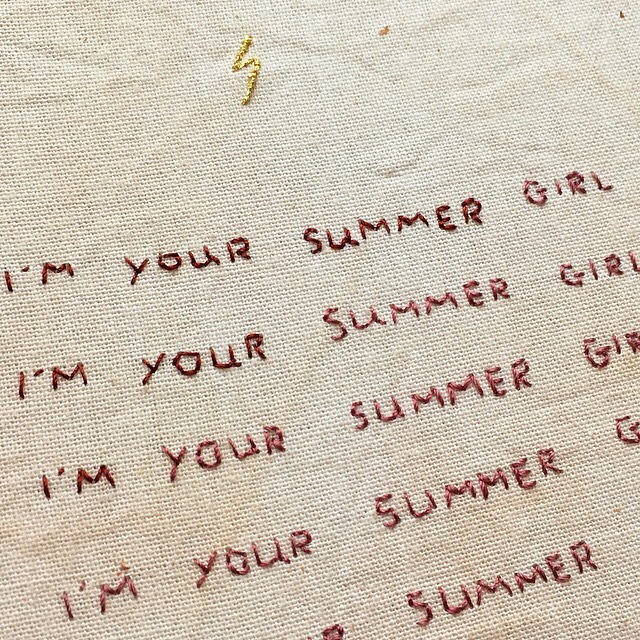 I'M YOUR SUMMER GIRL
I'M YOUR SUMMER GIRL
I'M YOUR SUMMER GIR
I'M YOUR SUMMER G
SUMMER